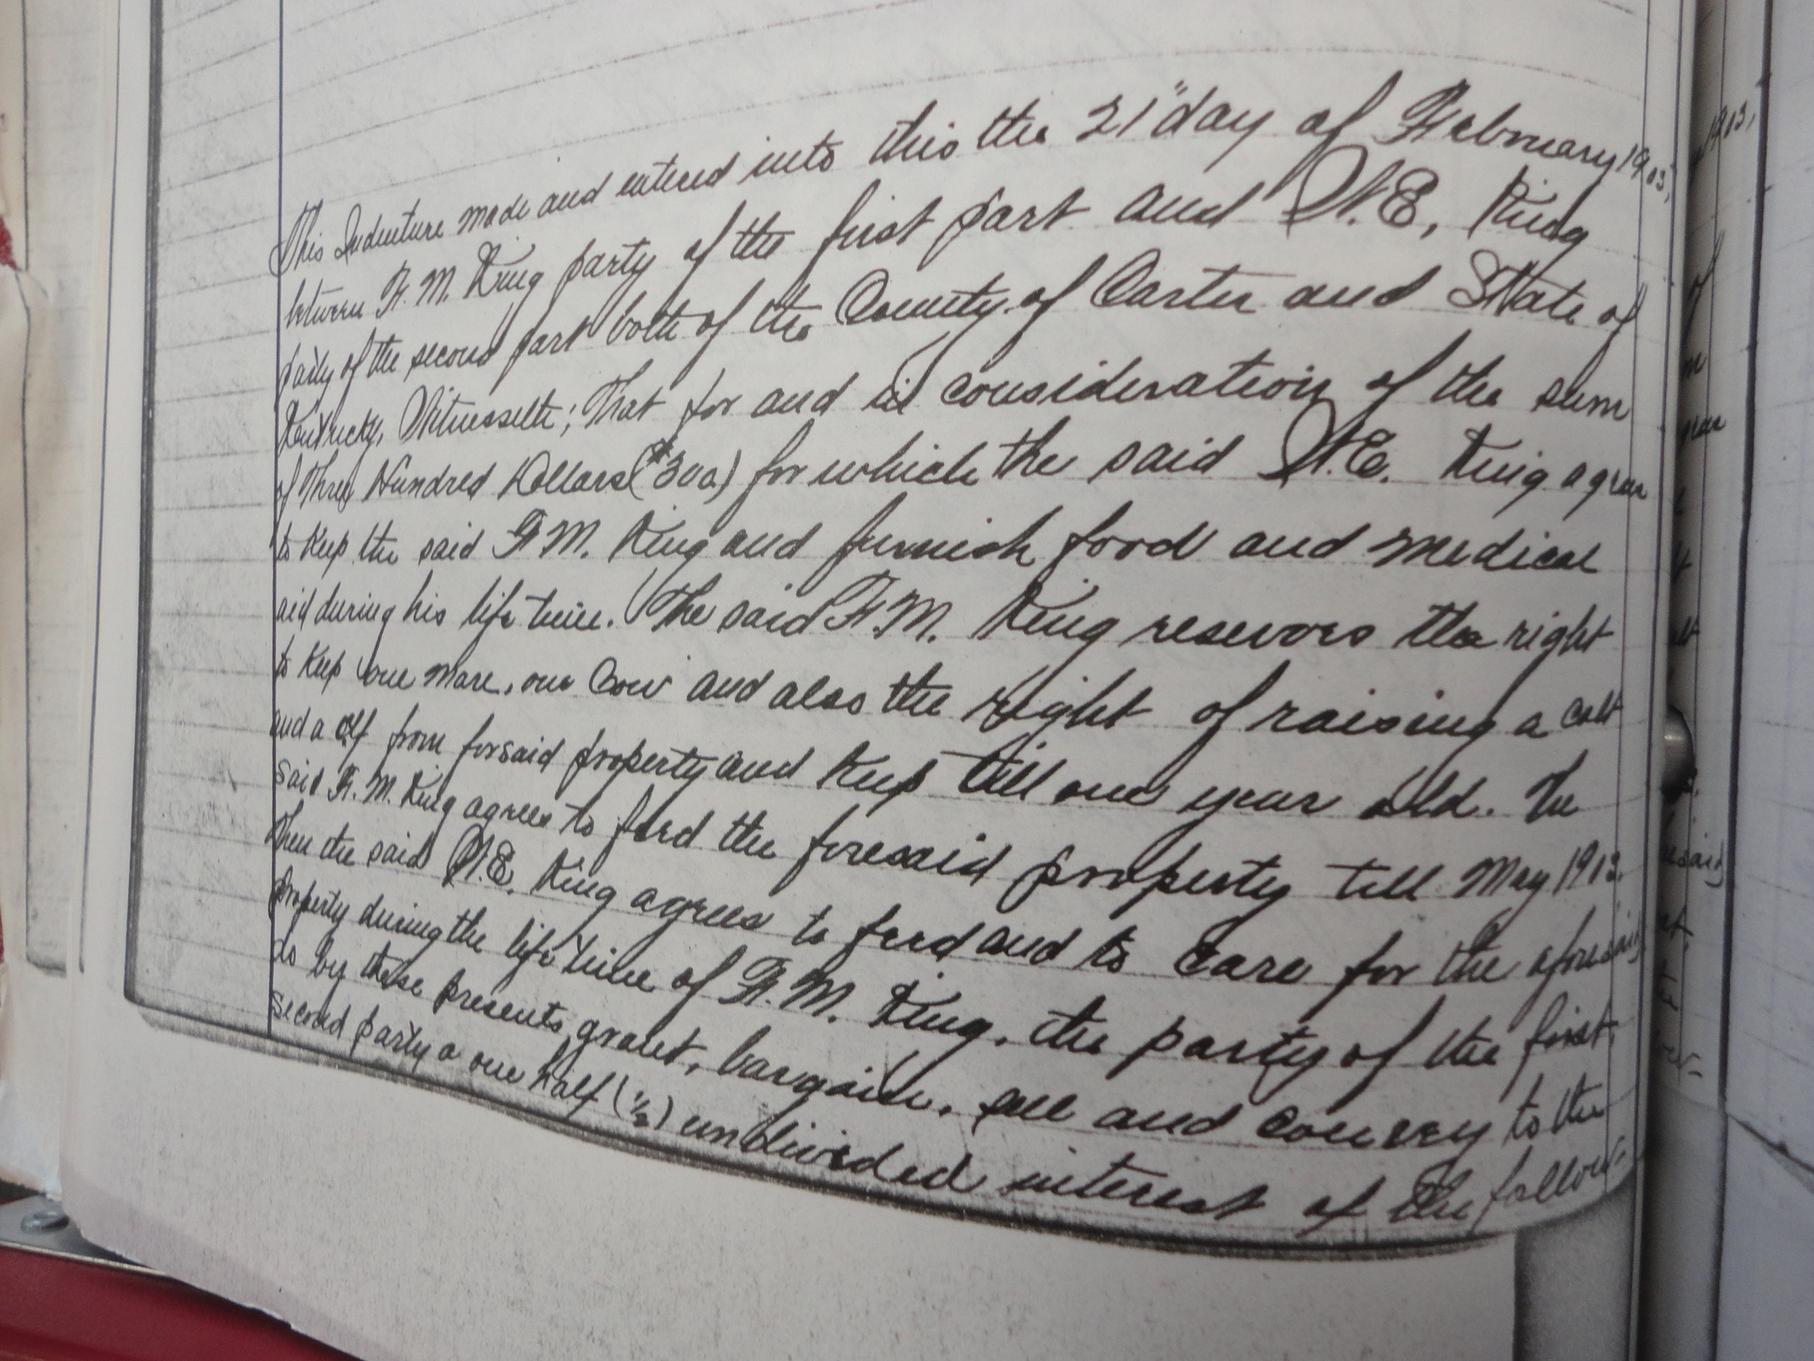 This Indenture made and entered into this the 21" day of February 1903,
between F. M. King party of the first part and W. E. King
party of the second part both of the County of Carter and State of
Kentucky, Witnesseth; That for and in consideration of the sum
of Three Hundred Dollars ($300) for which the said W. E. King agrees
to keep the said F. M. King and furnish food and medical
aid during his life time. The said F. M. King resevors the right
to keep one mare, one cow and also the right of raising a colt
and a calf from forsaid property and keep till one year old. The
said F. M. King agrees to feed the foresaid property till May 1903.
Then the said W. E. King agrees to feed and to care for the aforesaid
property during the life time of F. M. King, the party of the first,
do by these presents grant, bargain, sell and convey to the
second party a one half (1/2) undivided interest of the follow-